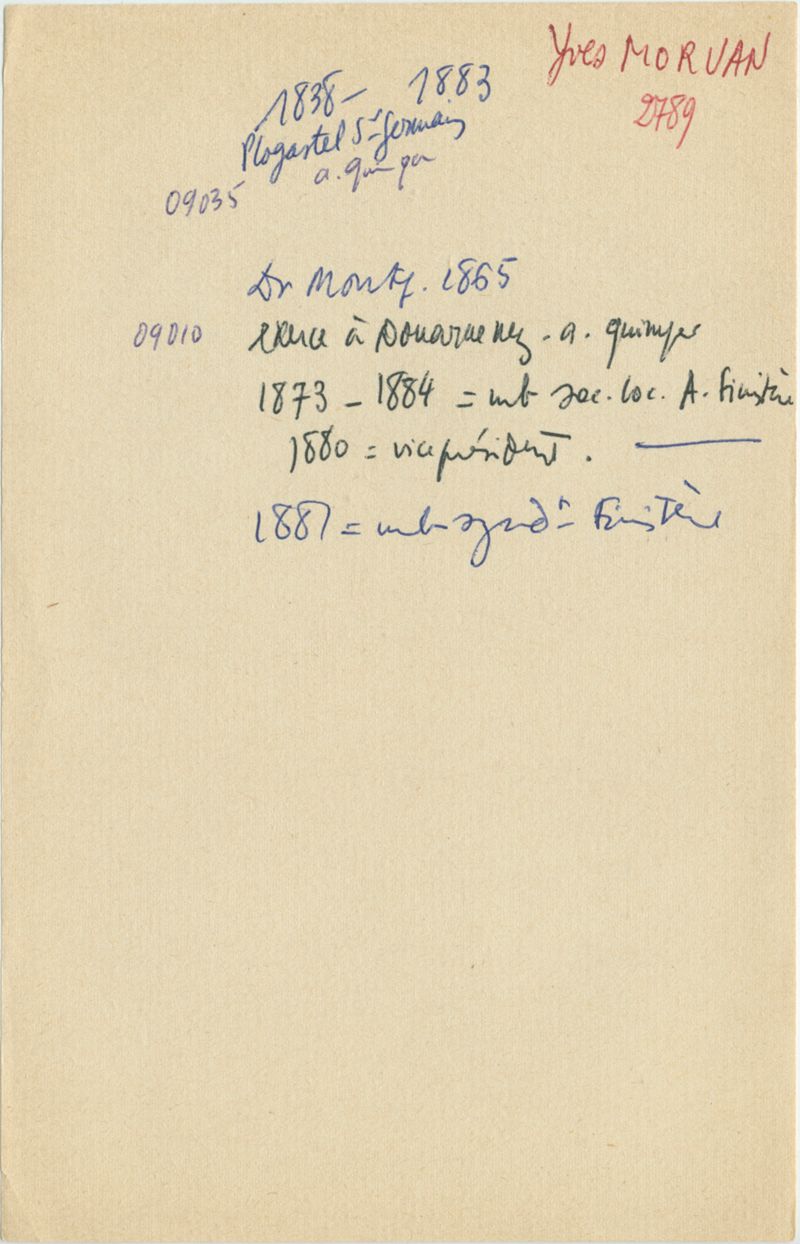 Yves MORVAN
2789
1838 - 1883
Plogastel St-Germain
a. quimper
09035
Dr Montp. 1865
09010 exerce à Douarnenez - a. quimper
1873 - 1884 = mb soc. loc. A. Finistère
1880 = vice président . ———
1881 = mb synd - Finistère